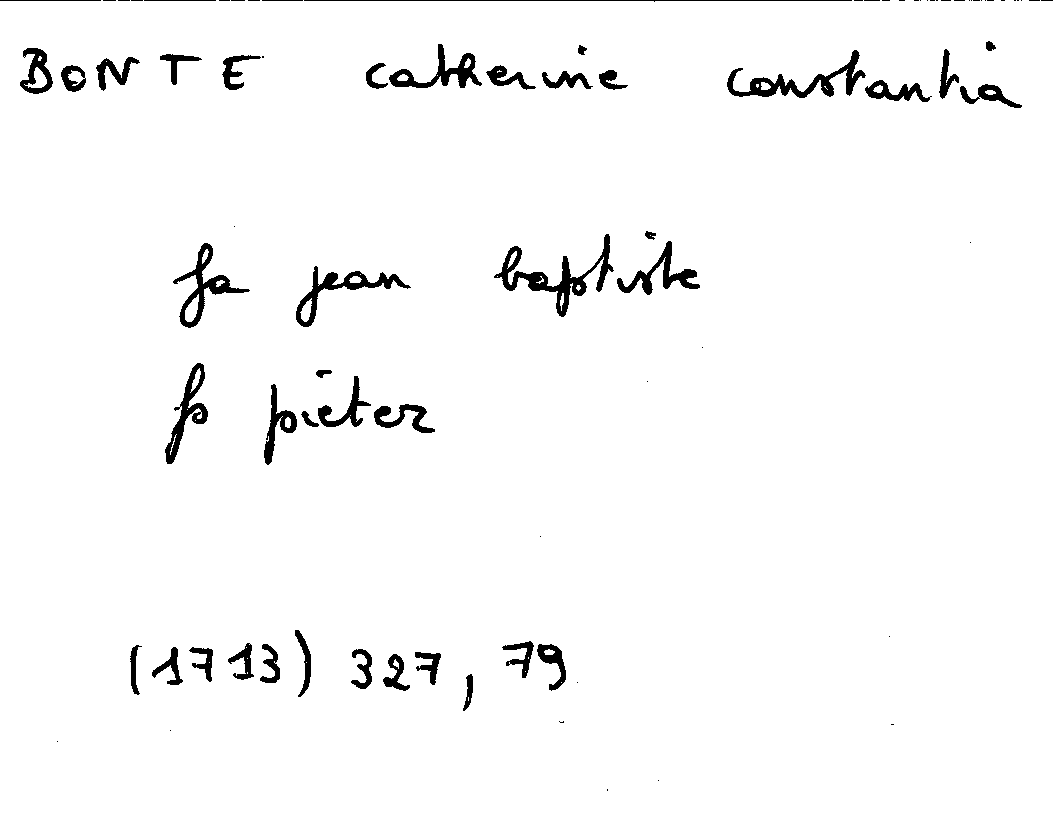 BONTE catherine constantia
fa jean baptiste
fs pieter
(1713) 327, 79